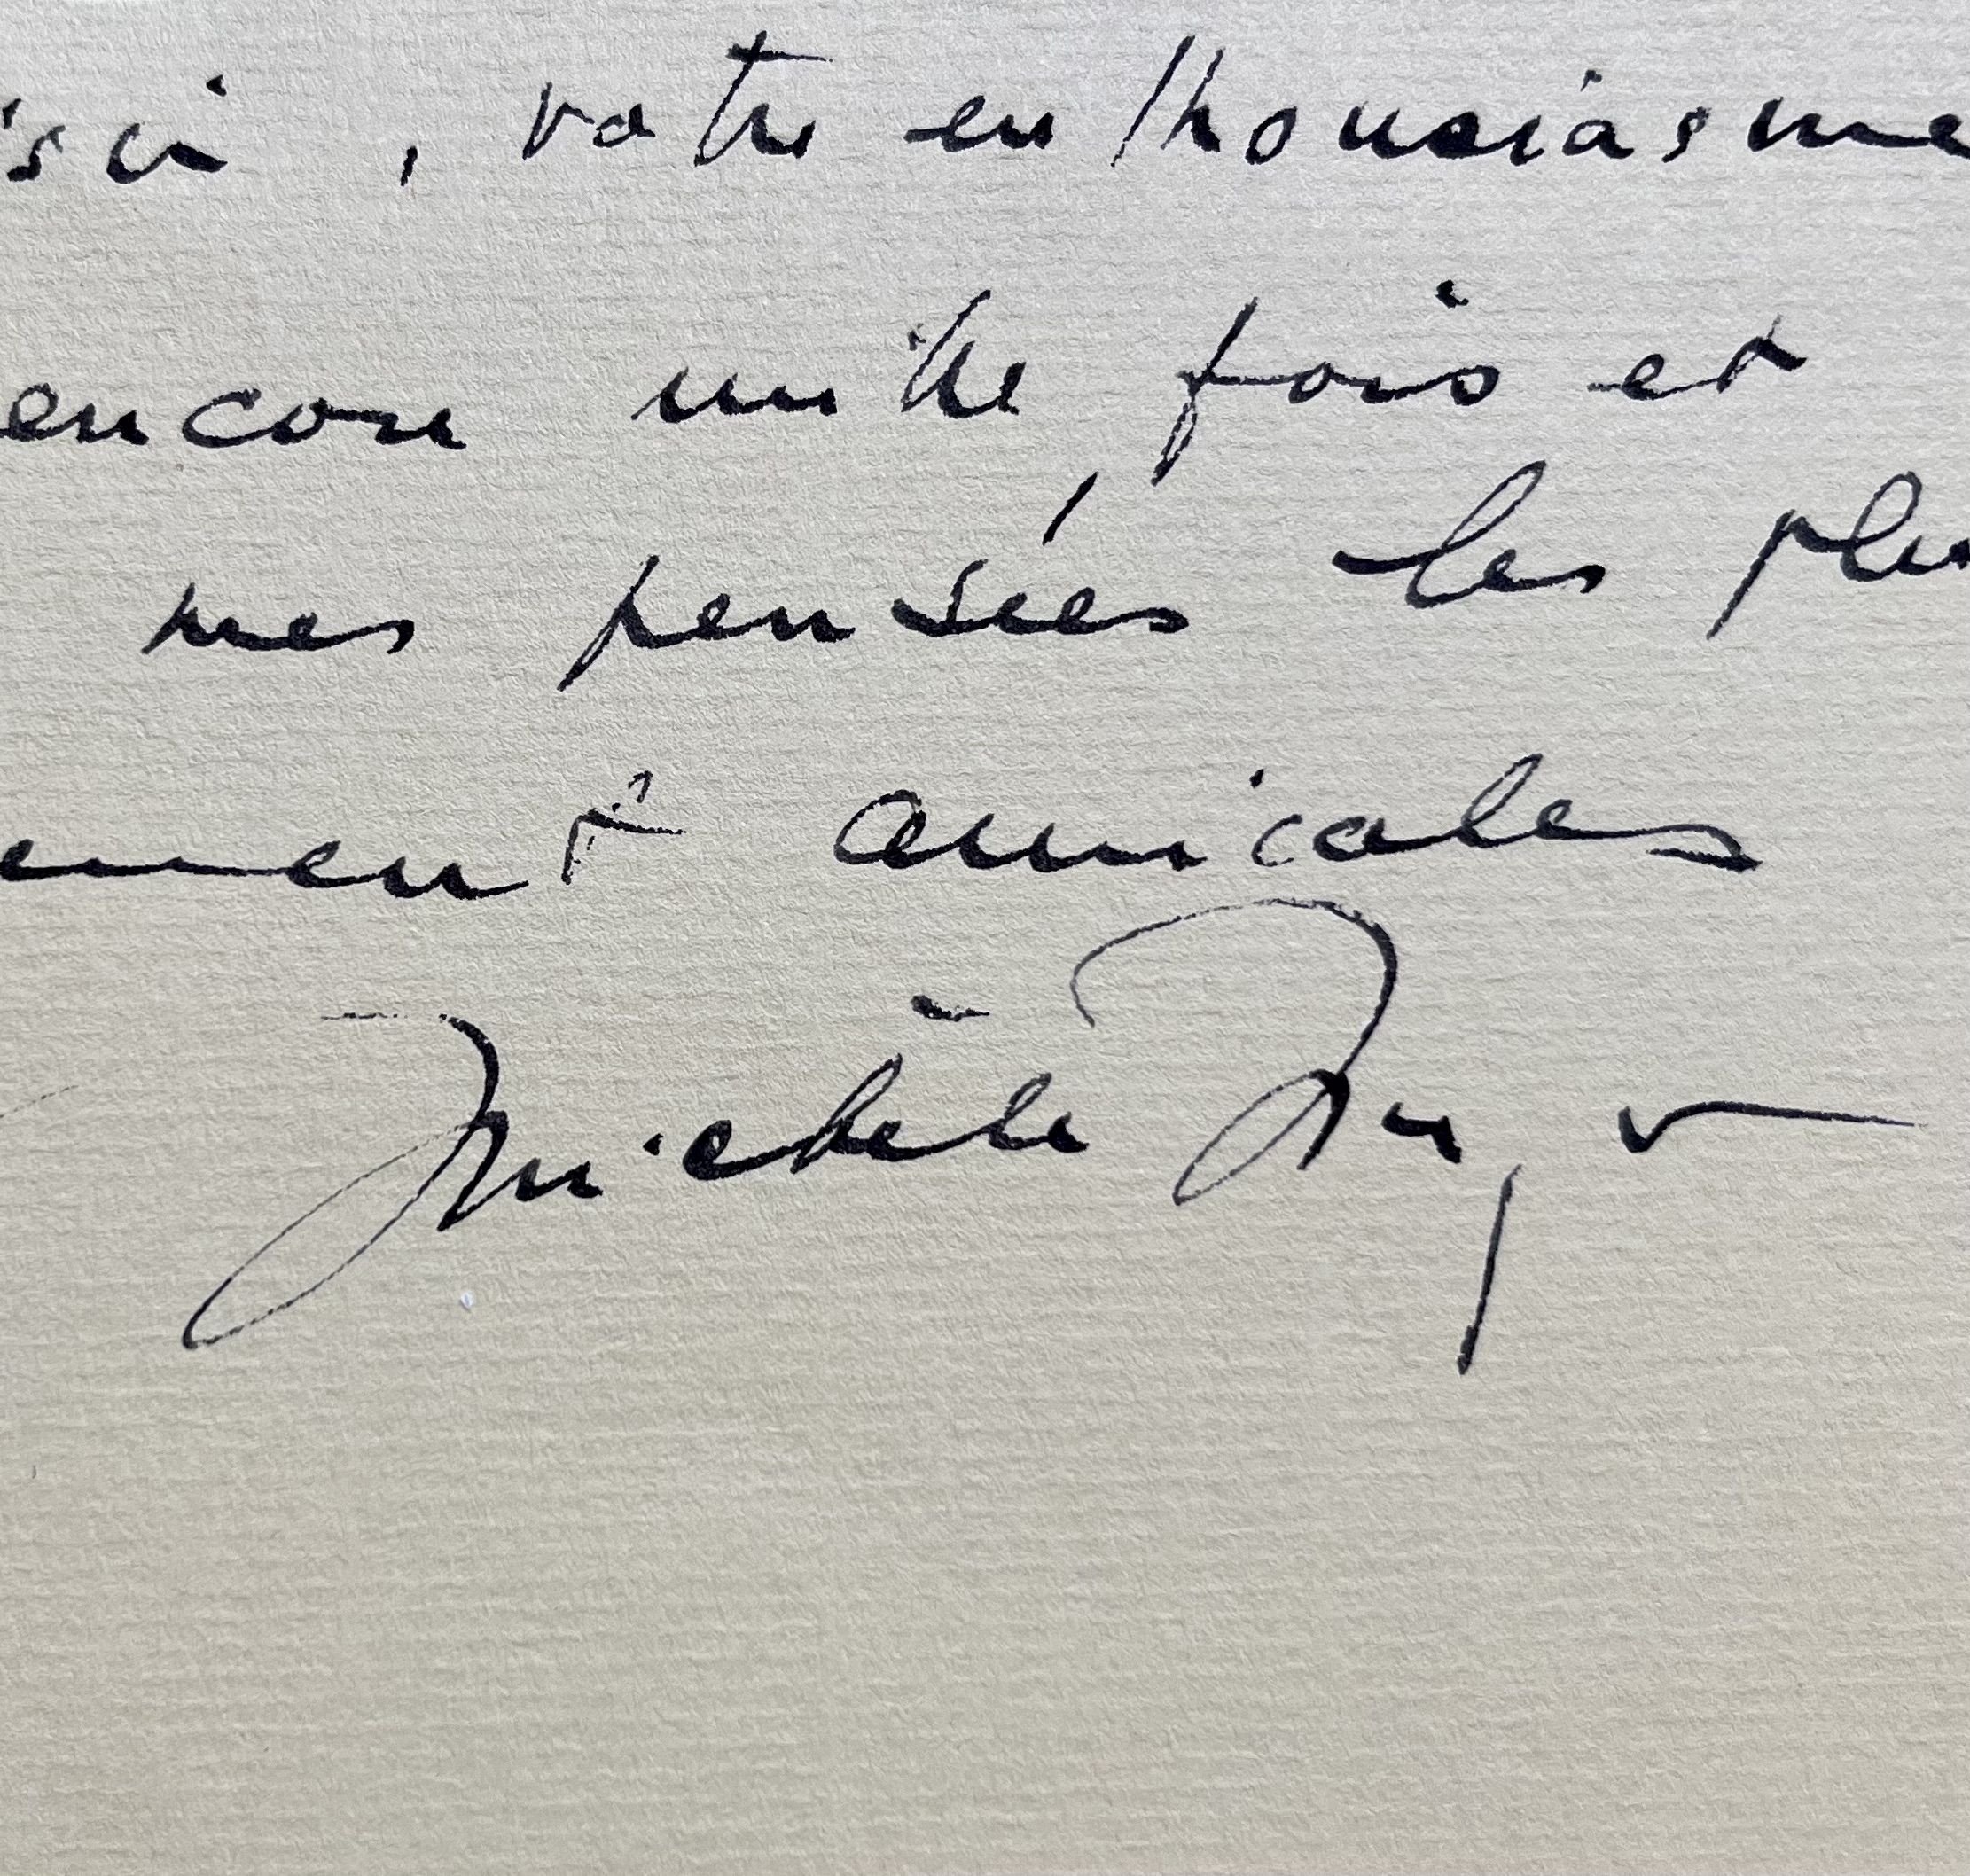 votre enthousiasme
encore mille fois et
mes pensées les plus
ement amicales
Michèle Morgan